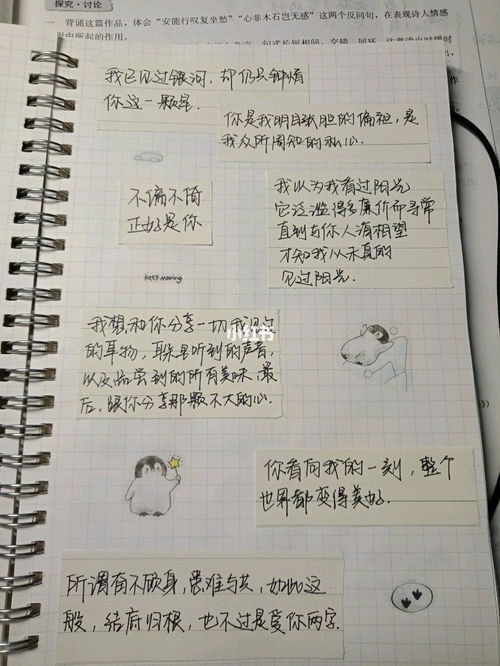 探究·讨论
一 背诵这篇作品，体会“安能行叹复坐愁”“心非木石岂无感”这两个反问句，在表现诗人情感
中所起的作用。
我已见过银河，却仍只钟情
你这一颗星.
你是我明目张胆的偏袒，是
我众所周知的私心.
不偏不倚
正好是你
我以为我看过阳光
它泛滥得多廉价而寻常
直到与你人海相望
才知我从未真的
见过阳光.
keep moving
我想和你分享一切我
的事物，耳朵里听到的声音，
以及品尝到的所有美味，最
后，跟你分享那颗不大的心.
小红书
你看向我的一刻，整个
世界都变得美好.
所谓有不顾身，患难与共，如此这
般，结府归根，也不过是爱你两字.